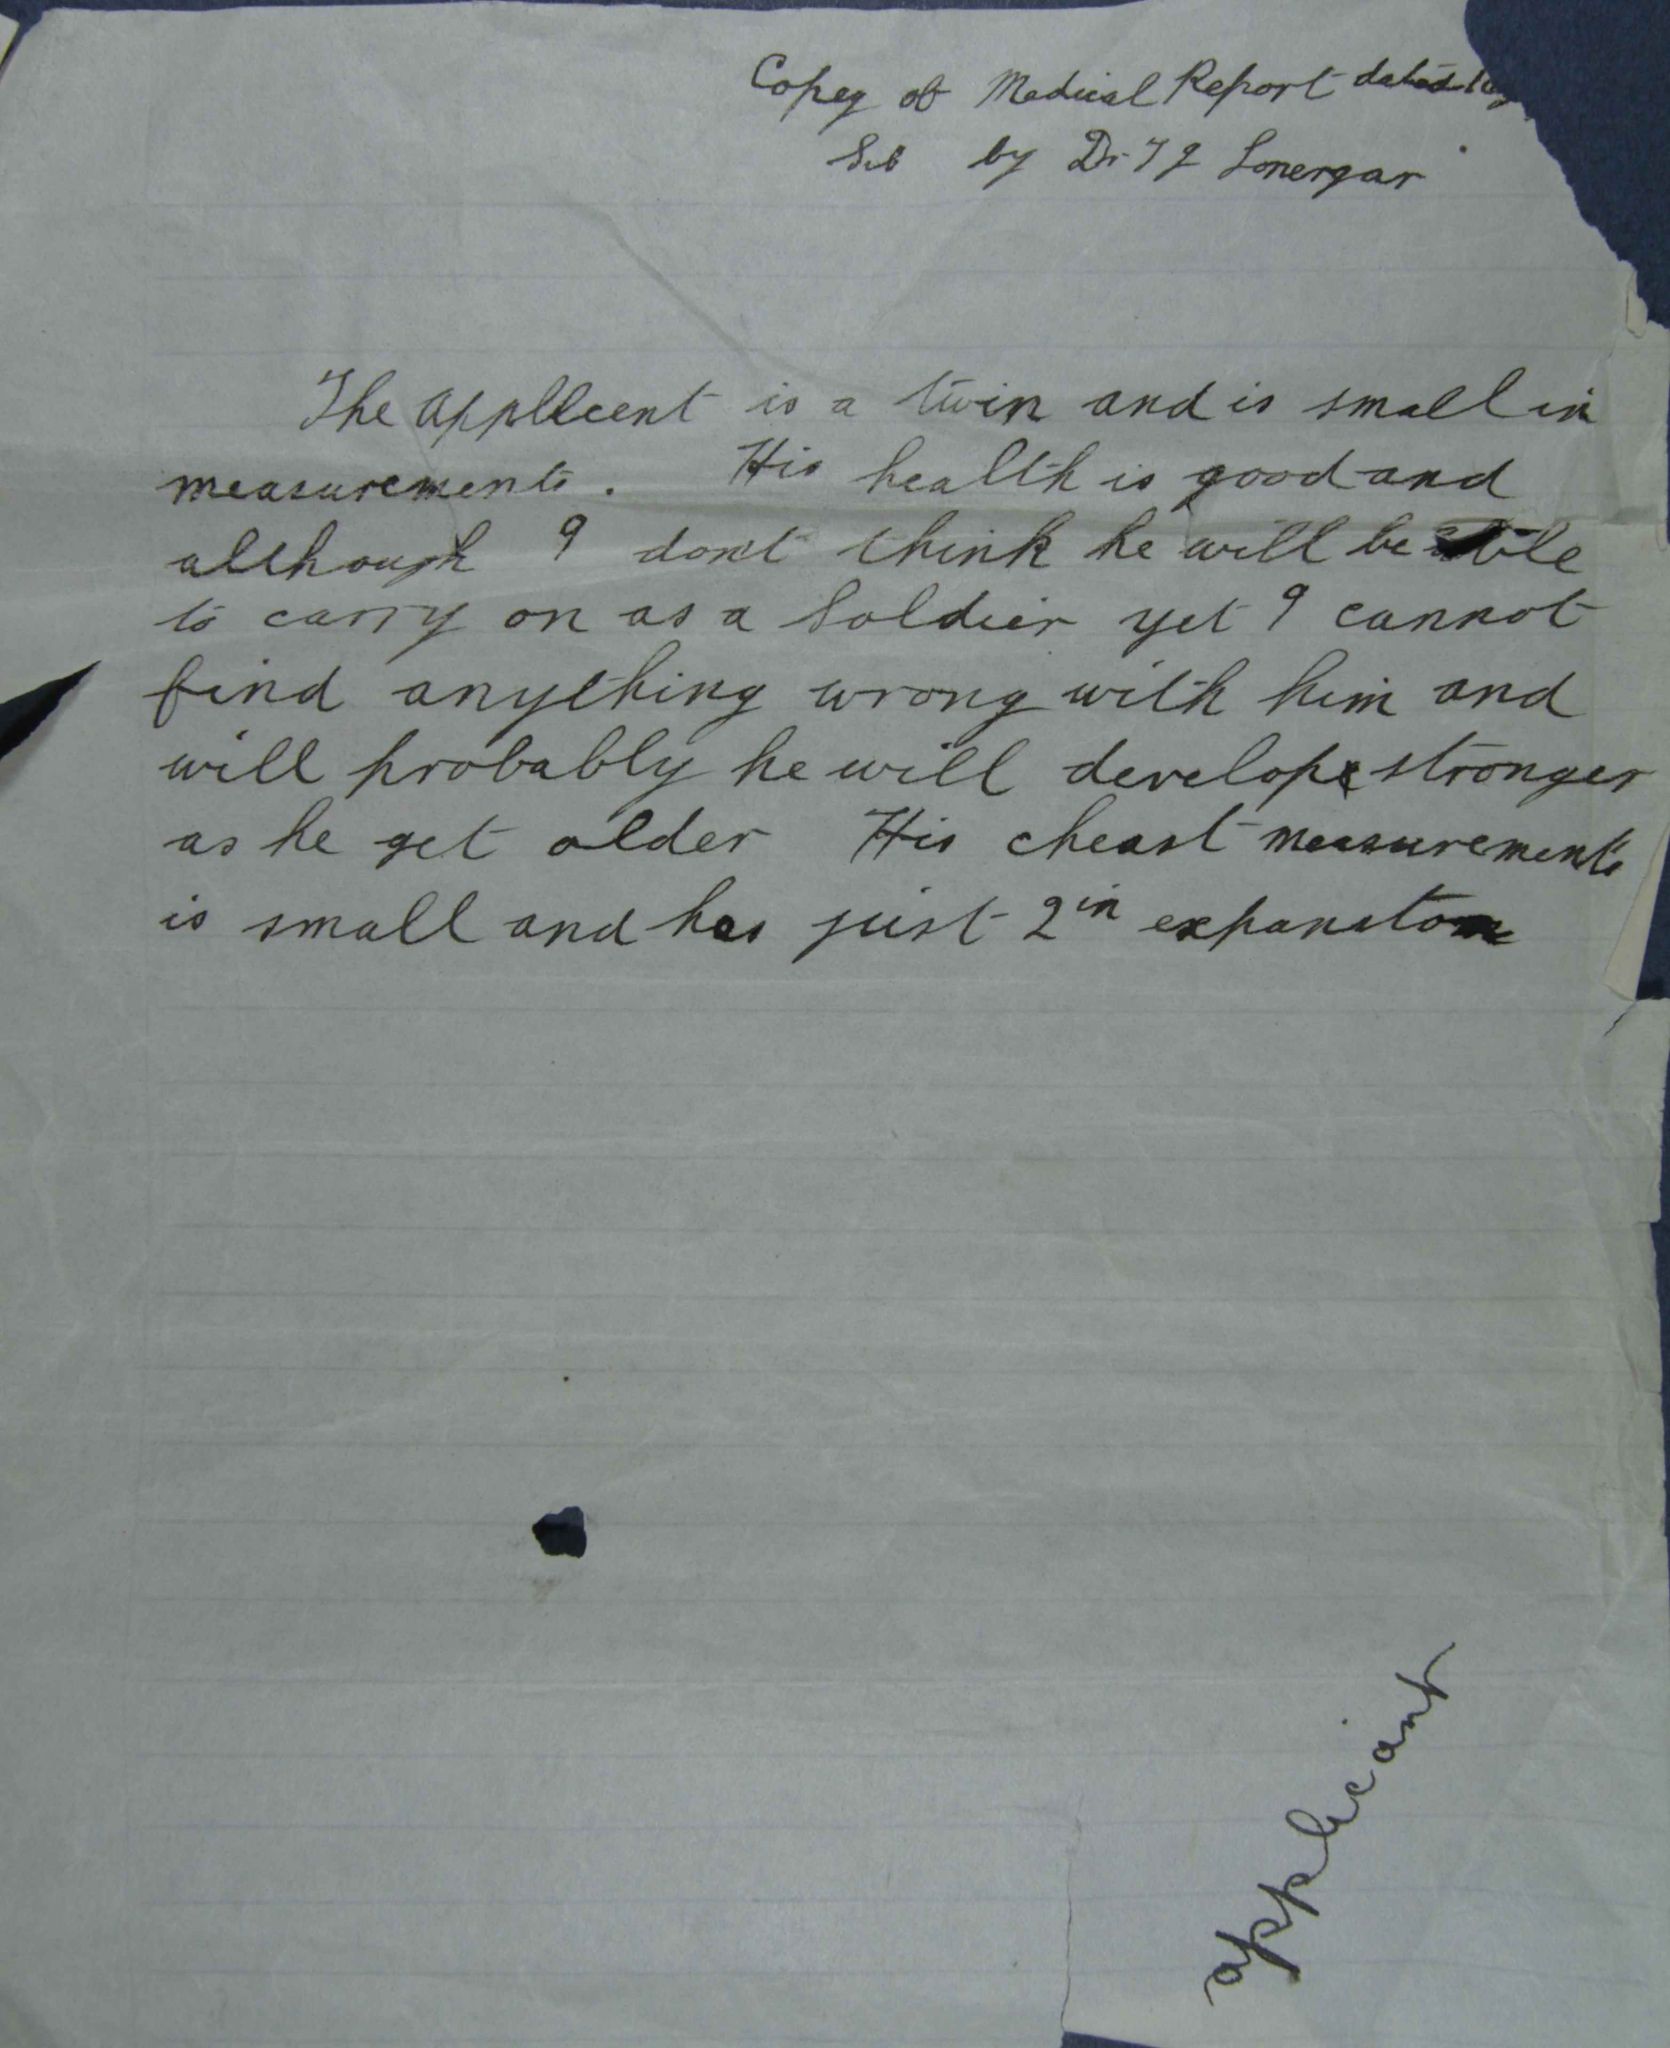 Copey of Medical Report dated
by Dr T J Lonergan
The Appllcent is a twin and is small in
measurements. His health is good and
although I dont think he will be able
to carry on as a Soldier yet I cannot
find anything wrong with him and
will probably he will develope stronger
as he get older His cheast measurements
is small and has just 2in expansion
applicant